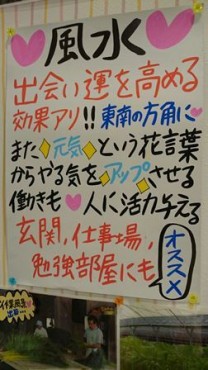 風水
出会い運を高める
効果アリ!! 東南の方角に
また元気という花言葉
からやる気をアップさせる
働きも 人に活力与える
玄関,仕事場,
勉強部屋にも
オススメ